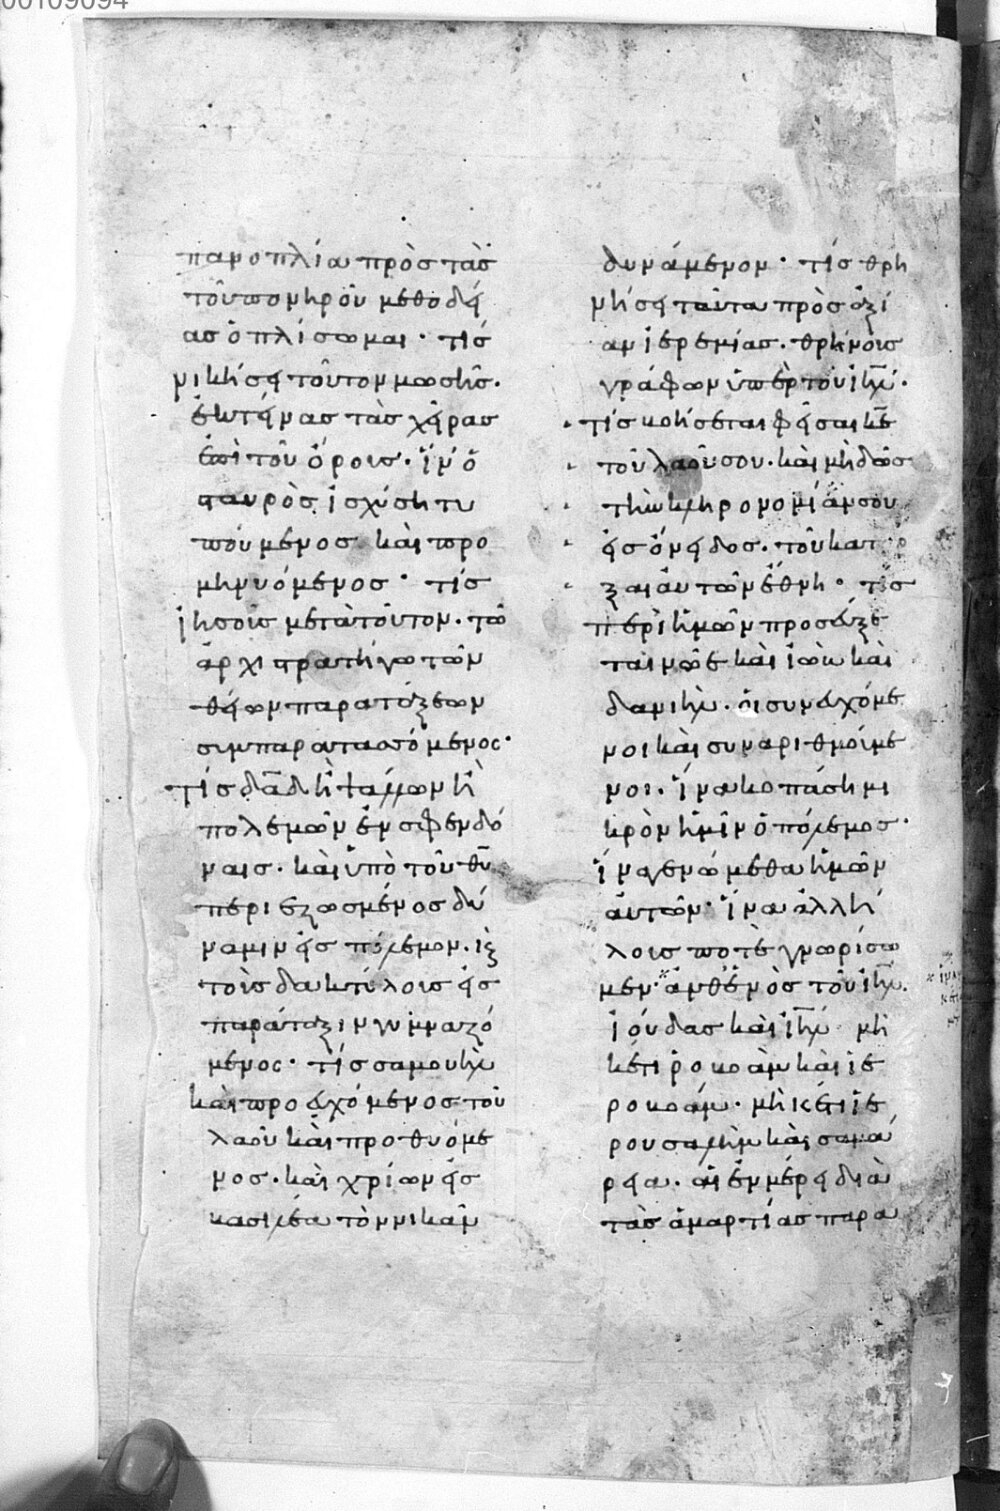 00109094
πανοπλία πρὸς τὰς
τοῦ πονηροῦ μεθοδεί
ας ὁπλίσωμαι· τίς
νικήσει τοῦτον μωσῆς·
ἐκτείνας τὰς χεῖρας
ἐπὶ τοῦ ὄρους· ἵν' ὁ
σταυρὸς ἰσχύση τυ
πούμενος καὶ προ
μηνυόμενος· τίς
ἰησοῦς μετὰ τοῦτον· τῶ
ἀρχιστρατήγω τῶν
θείων παρατάξεων
συμπαρατασσόμενος·
τίς δᾱδ ἢ ψάλλων ἢ
πολεμῶν ἐν σφενδό
ναις· καὶ ὑπὸ τοῦ θῡ
περιεζωσμένος δύ
ναμιν εἰς πόλεμον· καὶ
τοῖς δακτύλοις εἰς
παράταξιν γυμναζό
μενος· τίς σαμουὴλ
καὶ προευχόμενος τοῦ
λαοῦ καὶ προθυόμε
νος· καὶ χρίων εἰς
βασιλέα τὸν νικᾶν
δυνάμενον· τίς θρη
νήσει ταῦτα πρὸς ἀξί
αν ἱερεμίας· θρήνους
γράφων ὑπὲρ τοῦ ἰῆλ·
τίς βοήσεται φεῖσαι κε̄
τοῦ λαοῦ σου· καὶ μὴ δῶς
τὴν κληρονομίαν σου
εἰς ὄνειδος· τοῦ κατάρ
ξαι αὐτῶν ἔθνη· τίς
περὶ ἡμῶν προσεύξε
ται νῶε καὶ ἰὼβ καὶ
δανιὴλ· οἱ συνευχόμε
νοι καὶ συναριθμούμε
νοι· ἵνα κοπάση μι
κρὸν ἡμῖν ὁ πόλεμος·
ἵνα γενώμεθα ἡμῶν
αὐτῶν· ἵνα ἀλλή
λους ποτὲ γνωρίσω
μεν· ἀνθ' ἑνὸς τοῦ ἰῆλ·
ἰούδας καὶ ἰῆλ μὴ
κέτι ῥοβοὰμ καὶ ἱε
ροβοάμ· μὴκέτι ἱε
ρουσαλὴμ καὶ σαμά
ρεια· αἱ ἐν μέρει διὰ
τὰς ἁμαρτίας παρα